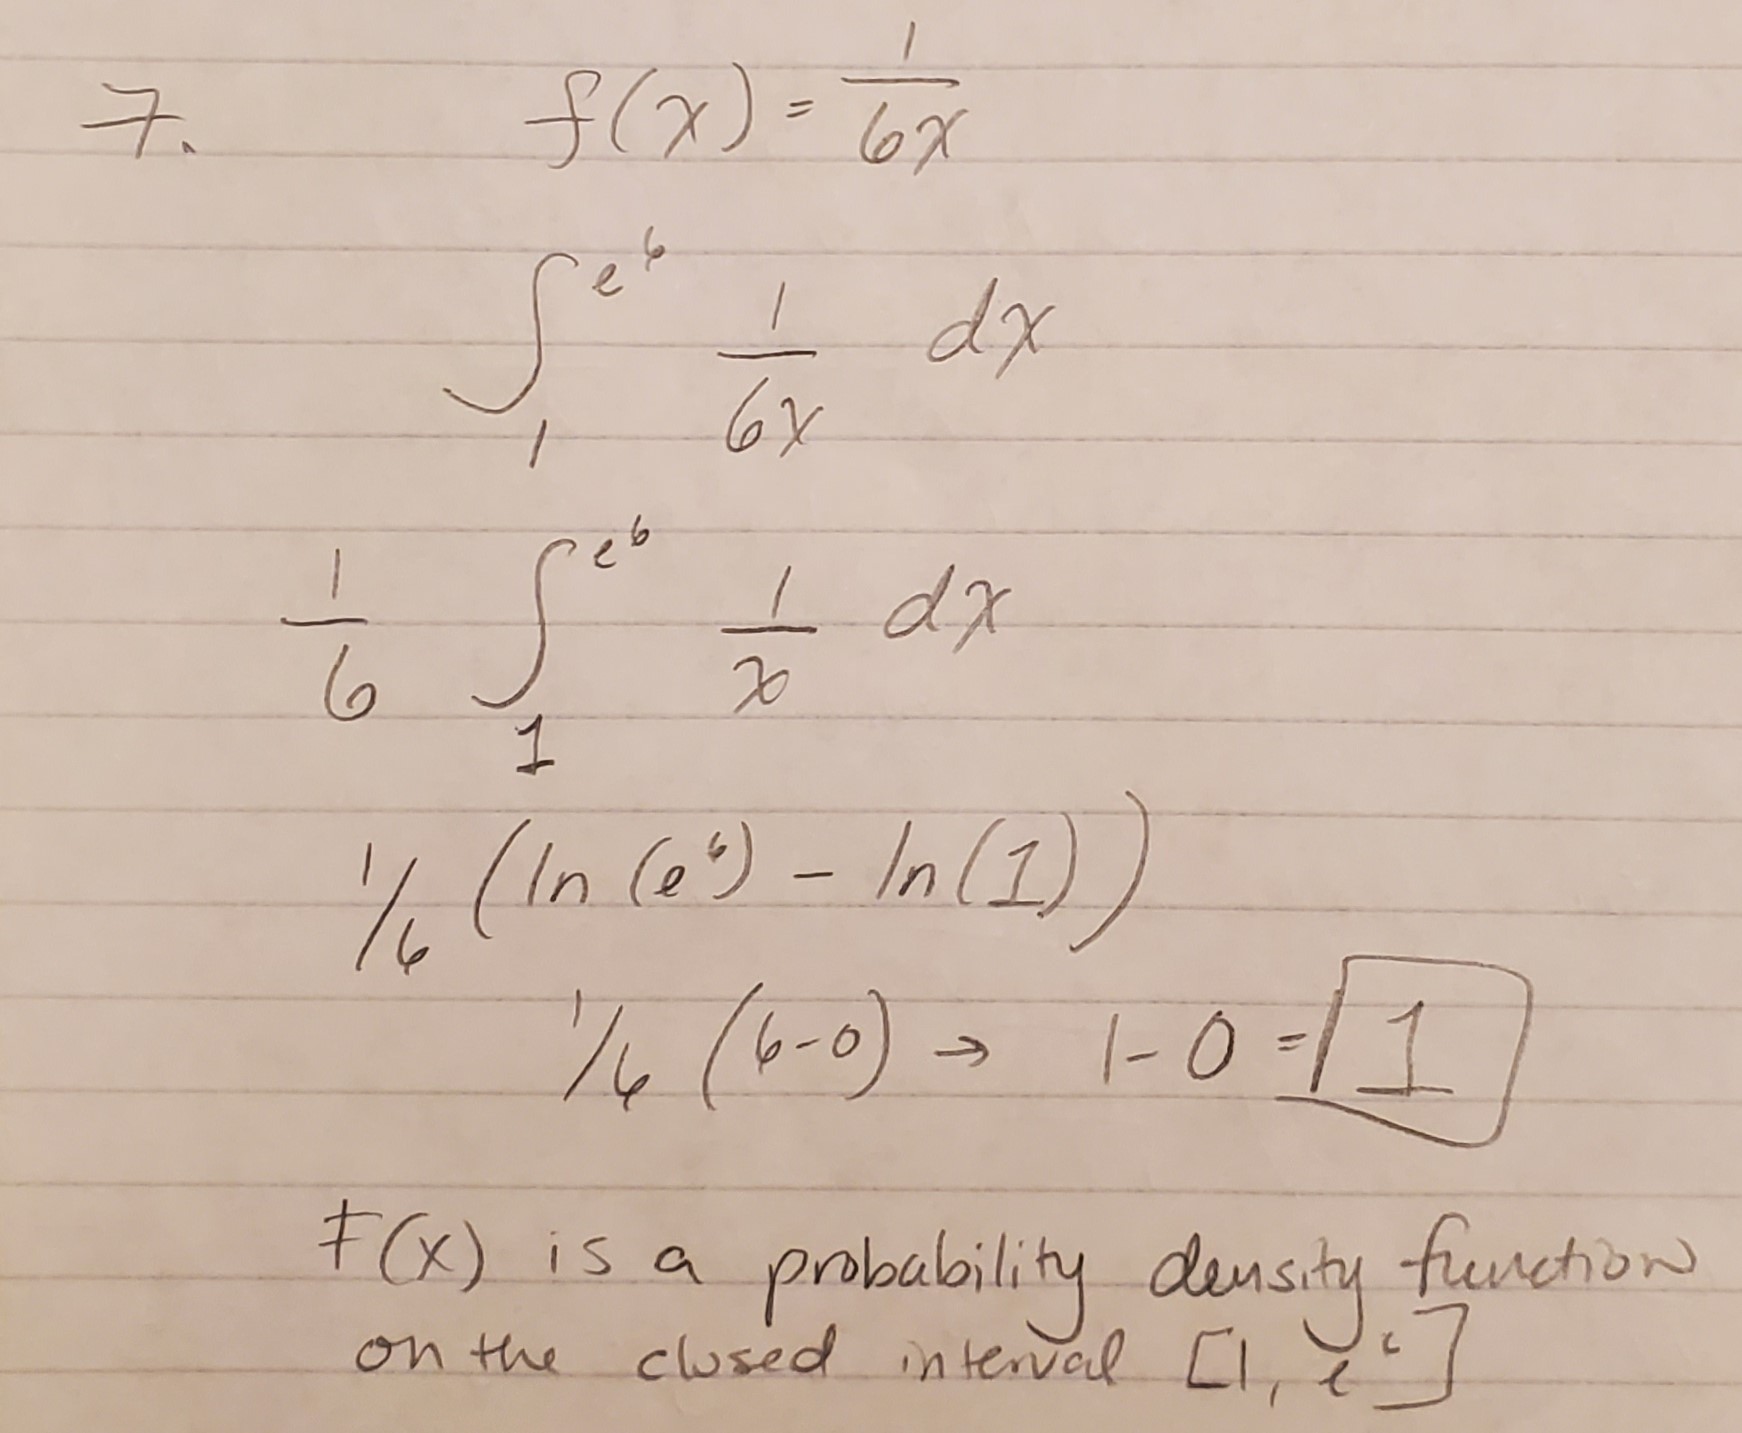 7. f(x) = 1/6x
∫₁^e⁶ 1/6x dx
1/6 ∫₁^e⁶ 1/x dx
1/6 (ln (e⁶) - ln (1))
1/6 (6-0) → 1-0 = 1
F(x) is a probability density function
on the closed interval [1, e⁶]